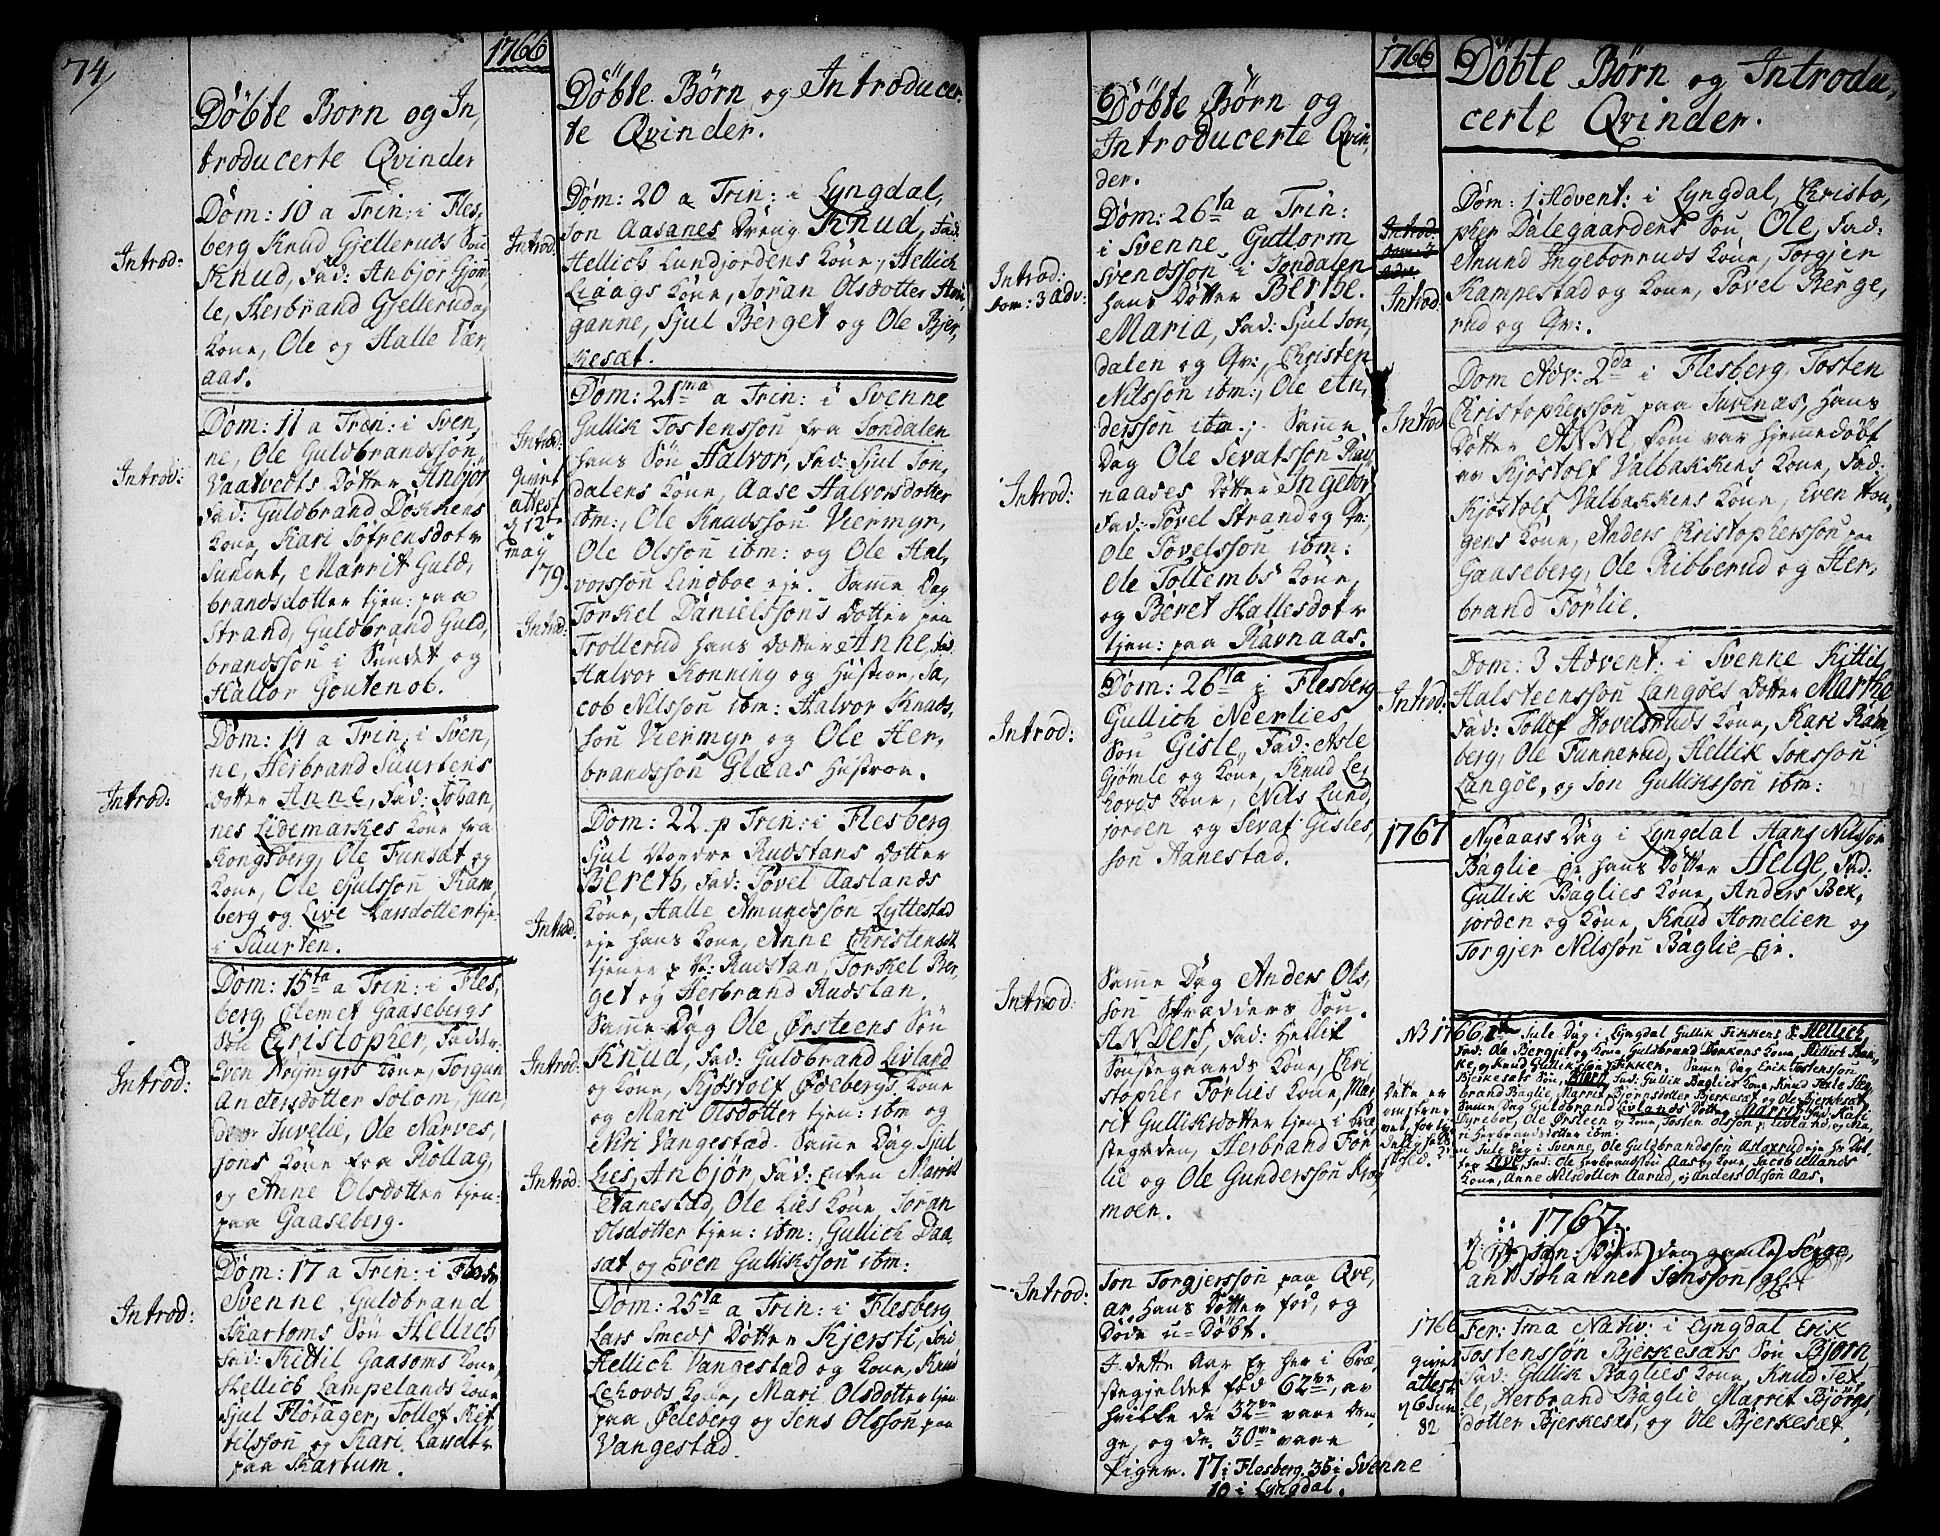 74/
1766
Döbte Born og In,
troducerte Qvinder
Dom: 10 a Trin: i Fles,
berg Knud Gjelleruds Sön
Knud, Fad: Anbjör Gjöm,
le, Herbrand Gjellerud og
Kone, Ole og Halle Vær,
aas.
Introd:
Dom: 11 a Trin: i Sven,
ne, Ole Guldbrandssön,
Vaatvedts Dotter Anbjör
Fad: Guldbrand Dokkens
Kone, Kari Söfrensdotr
Sundet, Marrit Guld,
brandsdotter tjen: paa
Strand, Guldbrand Guld,
brandssön i Sundet og
Halvor Goutenob.
Introd:
Dom: 14 a Trin: i Sven,
ne, Herbrand Suurtens
Dotter Anne, Fad: Johan,
nes Lidemarkes Kone fra
Kongsberg, Ole Funsat og
Kone, Ole Sjulssön Ram
berg og Live Larsdotter tje:
i Suurten.
Introd:
Dom: 15ta a Trin: i Fles,
berg, Clemet Gaasebergs
Sön Cristopher, Fadder:
Even Möjmyrs Kone, Torgun
Andersdotter Solom, Gun,
der Juvelie, Ole Narves,
sons Kone fra Rollag,
og Anne Olsdotter tjen:
paa Gaaseberg.
Introd:
Dom: 17 a Trin: i
Svenne Guldbrand
Skartoms Sön Hellich
Fad: Kittil Gaasoms Kone,
Hellich Lampelands Kone
Sjul Flörager, Tollef Kit,
tilssön og Kari Larsdotr
paa Skartum.
Introd:
Döbte Börn og Introducer,
te Qvinder.
Dom: 20 a Trin: i Lyngdal,
Jon Aasanes Dreng Knud, Fad:
Hellich Lundjordens Kone, Hellich
Liaags Kone, Joran Olsdotter
ganne, Sjul Berget og Ole Bjer,
kesat.
Introd:
Dom: 21ma a Trin: i Svenne
Gullik Tostenssön fra Jondalen
hans Sön Halvor, Fad: Sjul Jon,
dalens Kone, Aase Halvorsdotter
ibm:, Ole Knudssön Viermyr,
Ole Olssön ibm: og Ole Hal,
vorssön Lindboe eje. Samme Dag
Torkel Danielssöns Dotter paa
Trollerud hans Dotter Anne, Fad:
Halvor Konning og Hustroe, Ja,
cob Nilssön ibm: Halvor Knuds,
sön Viermyr og Ole Her,
brandssön Glaas Hustroe.
Introd:
givet
attest
d 12te
may
79.
Introd:
Dom: 22 p Trin: i Flesberg
Sjul Vordre Rudstans Dotter
Bereth, Fad: Povel Aaslands
Kone, Halle Amundssön Lyttestad
eje hans Kone, Anne Christensdtr
tjener p Ve: Rudstan, Torkel Ber,
get og Herbrand Rudstan.
Samme Dag Ole Örsteens Sön
Knud, Fad: Guldbrand Livland
og Kone, Kjöstolf Ödebergs Kone
og Mari Olsdotter tjen: ibm og
Niri Vangestad. Samme Dag Sjul
Lies, Anbjör, Fad: Enken Marrit
Hanestad, Ole Lies Kone, Joran
Olsdotter tjen: ibm:, Gullich Daa,
sat og Even Gullikssön ibm:
Introd:
Introd:
Introd:
Dom: 25ta a Trin: i Flesberg
Lars Smeds Dotter Kjersti, Fad
Hellich Vangestad og Kone, Knud
Lehovds Kone, Mari Olsdotter tjen
paa Ödeberg og Jens Olsson paa
Vangestad.
1766
Döbte Börn og
Introducerte Qvin,
der.
Dom: 26ta a Trin:
i Svenne Guttorm
Svendssön i Jondalen
hans Dotter Berthe.
Maria, Fad: Sjul Jon,
dalen og Qv:, Christen
Nilsson ibm:, Ole An,
dersson ibm.; Samme
Dag Ole Sevatssön Rav,
naases Dotter Ingebor
Fad: Povel Strand og Qv:,
Ole Povelssön ibm:
Ole Tollembs Kone,
og Beret Hallesdotr
tjen: paa Ravnaas.
Introd:
Dom: 3 Adv:
Introd:
Dom: 26ta p Flesberg
Gullich Neerlies
Sön Gisle, Fad: Asle
Gjömle og Kone, Knud Le,
hovds Kone, Nils Lund,
jorden og Sevat Gisles,
sön Aanestad.
Introd:
Samme Dag Anders Ols,
sön Skrædders Sön
Anders, Fad: Hellik
Sönstegaards Kone, Chri,
stopher Förlies Kone, Mar,
rit Gulliksdotter tjen i Præ,
stegaden, Herbrand För
lie og Ole Gunderssön Skog
moen.
Introd:
Jon Torgjerssön paa Qve,
ar, hans Dotter föd, og
Döde u-Döbt.
Introd:
I dette Aar Er her i Præ,
stegjeldet föd 62ve, av
hvilke de 32ve vare Dren
ge, og de 30ve vare
Piger. 17 i Flesberg. 35 i Svenne
10 i Lyngdal.
Döbte Börn og Introdu,
certe Qvinder.
Dom: 1. Advent: i Lyngdal, Christo,
pher Dalegaardens Sön Ole, Fad:
Amund Ingeborruds Kone, Torgjer
Kampestad og Kone, Povel Berge,
rud og Qv:.
Introd:
Dom Adv: 2da i Flesberg, Tosten
Kristopherssön paa Juvenæs, hans
Dotter Anne, som var hjemmedöbt
av Kjöstolf Valbakkens Kone, Fad:
Kjöstolf Valbakkens Kone, Even Hou,
gens Kone, Anders Christopherssön paa
Gaaseberg, Ole Ribberud og Her,
brand Förlie.
Introd
Dom: 3 Advent: i Svenne Kittil
Halsteenssön Langöes Dotter Marthe
Fad: Tollef Hovelsruds Kone, Kari Ram
berg, Ole Tunnerud, Hellik Jonssön
Langöe, og Jon Gullikssön ibm:
Introd:
1767
Nyeaars Dag i Lyngdal Hans Nilssön
Baglie eje hans Dotter Helge, Fad:
Gullik Baglies Kone, Anders Bek,
jorden og Kone, Knud Homelien og
Torgjer Nilssön Baglie Eje.
NB 1766 2den Jule Dag i Lyngdal Gullik Fikkens S. Hellich
Fad: Ole Berget og Kone Guldbrand Dokkens Kone,
og Knud Gullikssön Fikken. Samme Dag Erik Tostenssön
Bjerkesats Sön, Fad: Gullik Baglies Kone, Knud Texle Her,
brand Baglie, Marrit Björnsdotter Bjerkesæt og Ole Bjerkesæt.
Samme Dag Guldbrand Livlands Dotter Marrit, Fad: Kari
Dyreboe, Ole Örsteen og Kone, Tosten Olssön p Livland, og Ma,
ri Herbrandsdotter ibm:
Jule Dag i Svenne, Ole Guldbrandssön Aslaxrud eje hs Dot,
ter Live, Fad: Ole Herbrandssön Aas og Kone, Jacob Ullands
Kone, Anne Nilsdotter Aarud, og Anders Olssön Aas.
1767.
d 1t Jan: döde den gamle Serge,
ant Johannes Jonssön
1766
givet
attest
d 6 Jun:
82
Fer: 1ma Nativ: i Lyngdal Erik
Tostenssön Bjerkesæts Sön Björn
Fad: Gullik Baglies Kone, Knud Tex,
le, Herbrand Baglie Marrit Björgs,
dotter Bjerkesæt, og Ole Bjerkesæt.